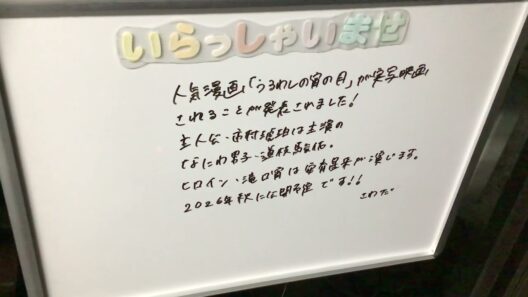 いらっしゃいませ
人気漫画「うるわしの宵の月」が実写映画化
されることが発表されました!
主人公・市村琥珀は主演の
なにわ男子・道枝駿佑。
ヒロイン・滝口宵は安斉星来が演じます。
2026年秋には開催です!!
さわだ